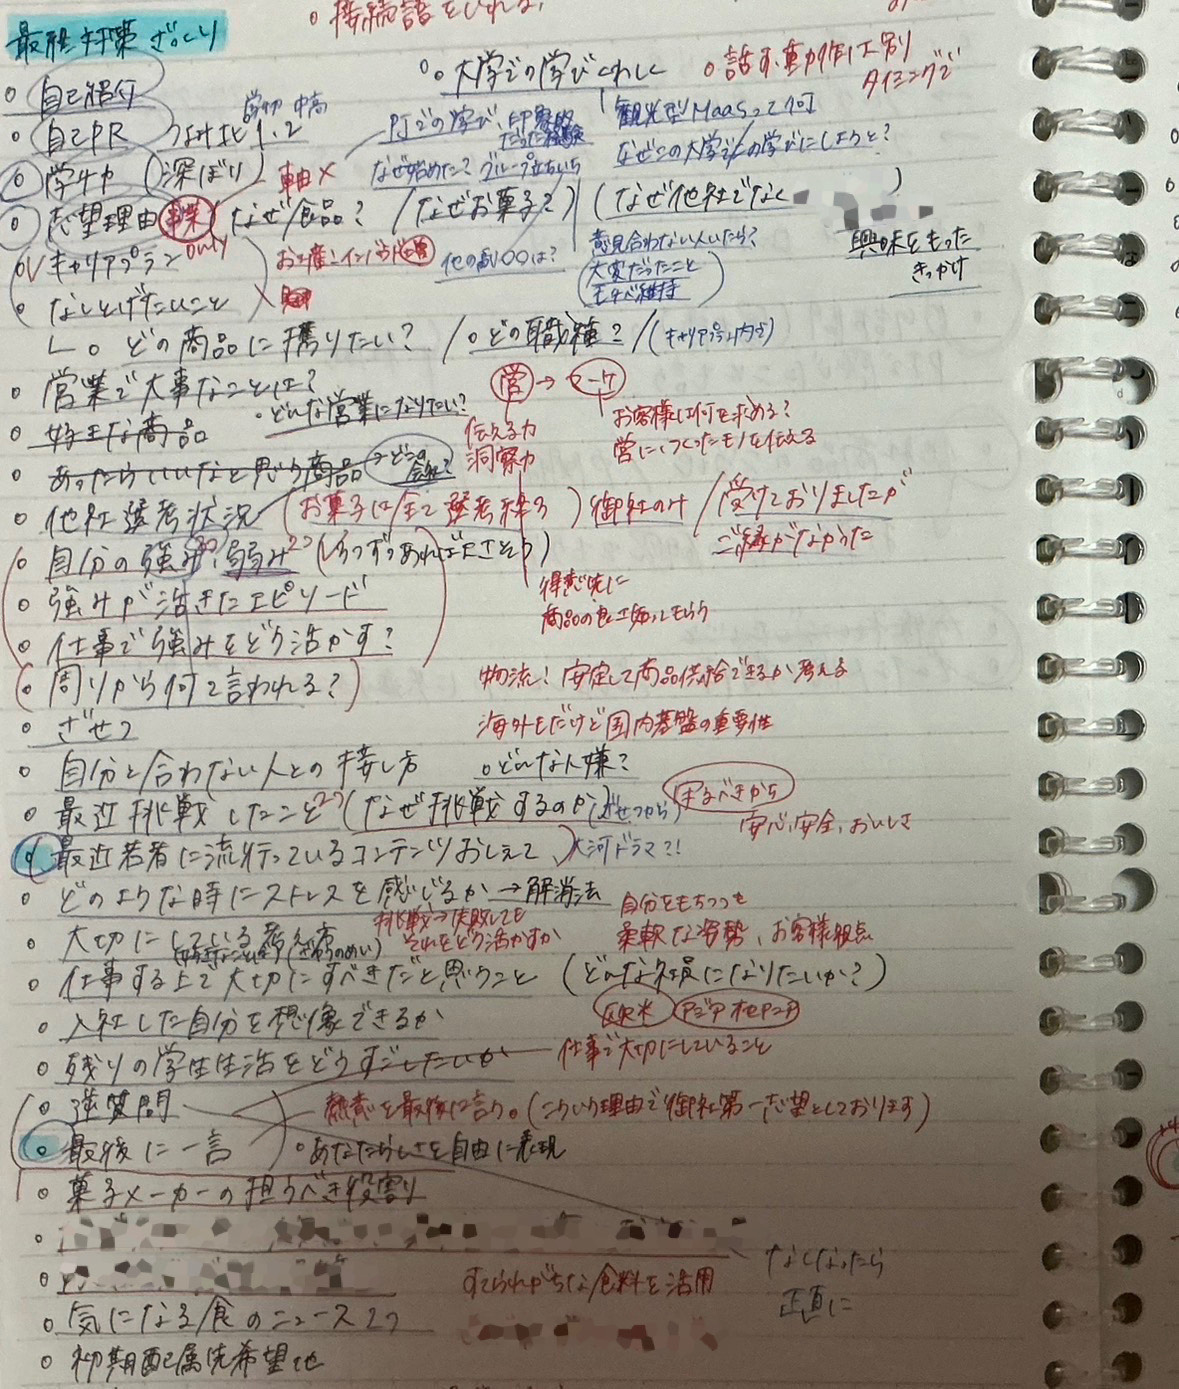 。接続語をいれる、
最終対策ざっくり
。。大学での学びくわしく
。話す、動作は別タイミングで
。自己紹介
学チカ 中高
。自己PR つよみは 1、2
PJでの学び、印象的だった経験
観光型MaaSって何
。学チカ (深ぼり)
軸×
なぜ始めた? グループ立ちいち
なぜこの大学、この学びにしようと?
。志望理由 事業only
(なぜ食品? / なぜお菓子?) (なぜ他社でなく )
。キャリアプラン
お土産、インバウンド
他の は?
意見合わない人いたら?
大変だったこと
モチベ維持
興味をもったきっかけ
。なしとげたいこと
└ 。どの商品に携りたい? / 。どの職種? / (キャリアプラン内容)
。営業で大事なことは?
。どんな営業になりたい?
営 → マーケ
伝える力
洞察力
お客様は何を求める?
営につくったモノを伝える
。好きな商品
。あったらいいなと思う商品
。他社選考状況 (お菓子は全て選考終了) 御社のみ / 受けておりましたが
ご縁がなかった
。自分の強み、弱み (1つずつあれば大さそう)
得意先に
商品の良さ知ってもらう
。強みが活きたエピソード
。仕事で強みをどう活かす?
。周りから何て言われる?
物流! 安定して商品供給できるか考える
。ざせつ
海外もだけど国内基盤の重要性
。自分と合わない人との接し方 。どんな人嫌?
。最近挑戦したこと2つ (なぜ挑戦するのか) (ざせつから)
守るべきから
安心、安全、おいしさ
。最近若者に流行っているコンテンツおしえて 大河ドラマ?!
。どのような時にストレスを感じるか → 解消法
挑戦→失敗しても
それをどう活かすか
自分をもちつつも
柔軟な姿勢、お客様視点
。大切にしている
。仕事する上で大切にすべきだと思うこと (どんな社員になりたいか?)
欧米 アジア
。入社した自分を想像できるか
。残りの学生生活をどうすごしたいか
仕事で大切にしていること
。逆質問
熱意を最後に言う。(こういう理由で御社第一志望としております)
。最後に一言 。あなたらしさを自由に表現
。菓子メーカーの担うべき役割り
なくなったら
正直に
すてられがちな食料を活用
。気になる食のニュース2つ
。初期配属先希望地